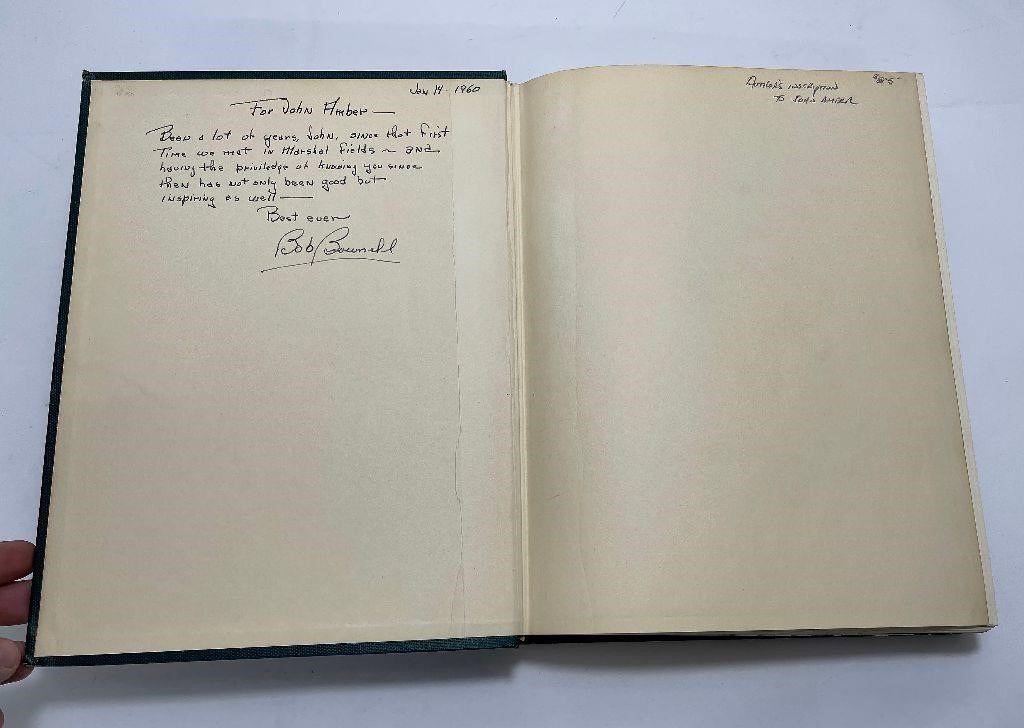 Jan 14 - 1960
For John Amber —
Been a lot of years, John, since that first
Time we met in Marshal Fields ~ and
having the priviledge of knowing you since
then has not only been good but
inspiring as well —
Best ever
Bob Brownell
Author's inscription
to John Amber